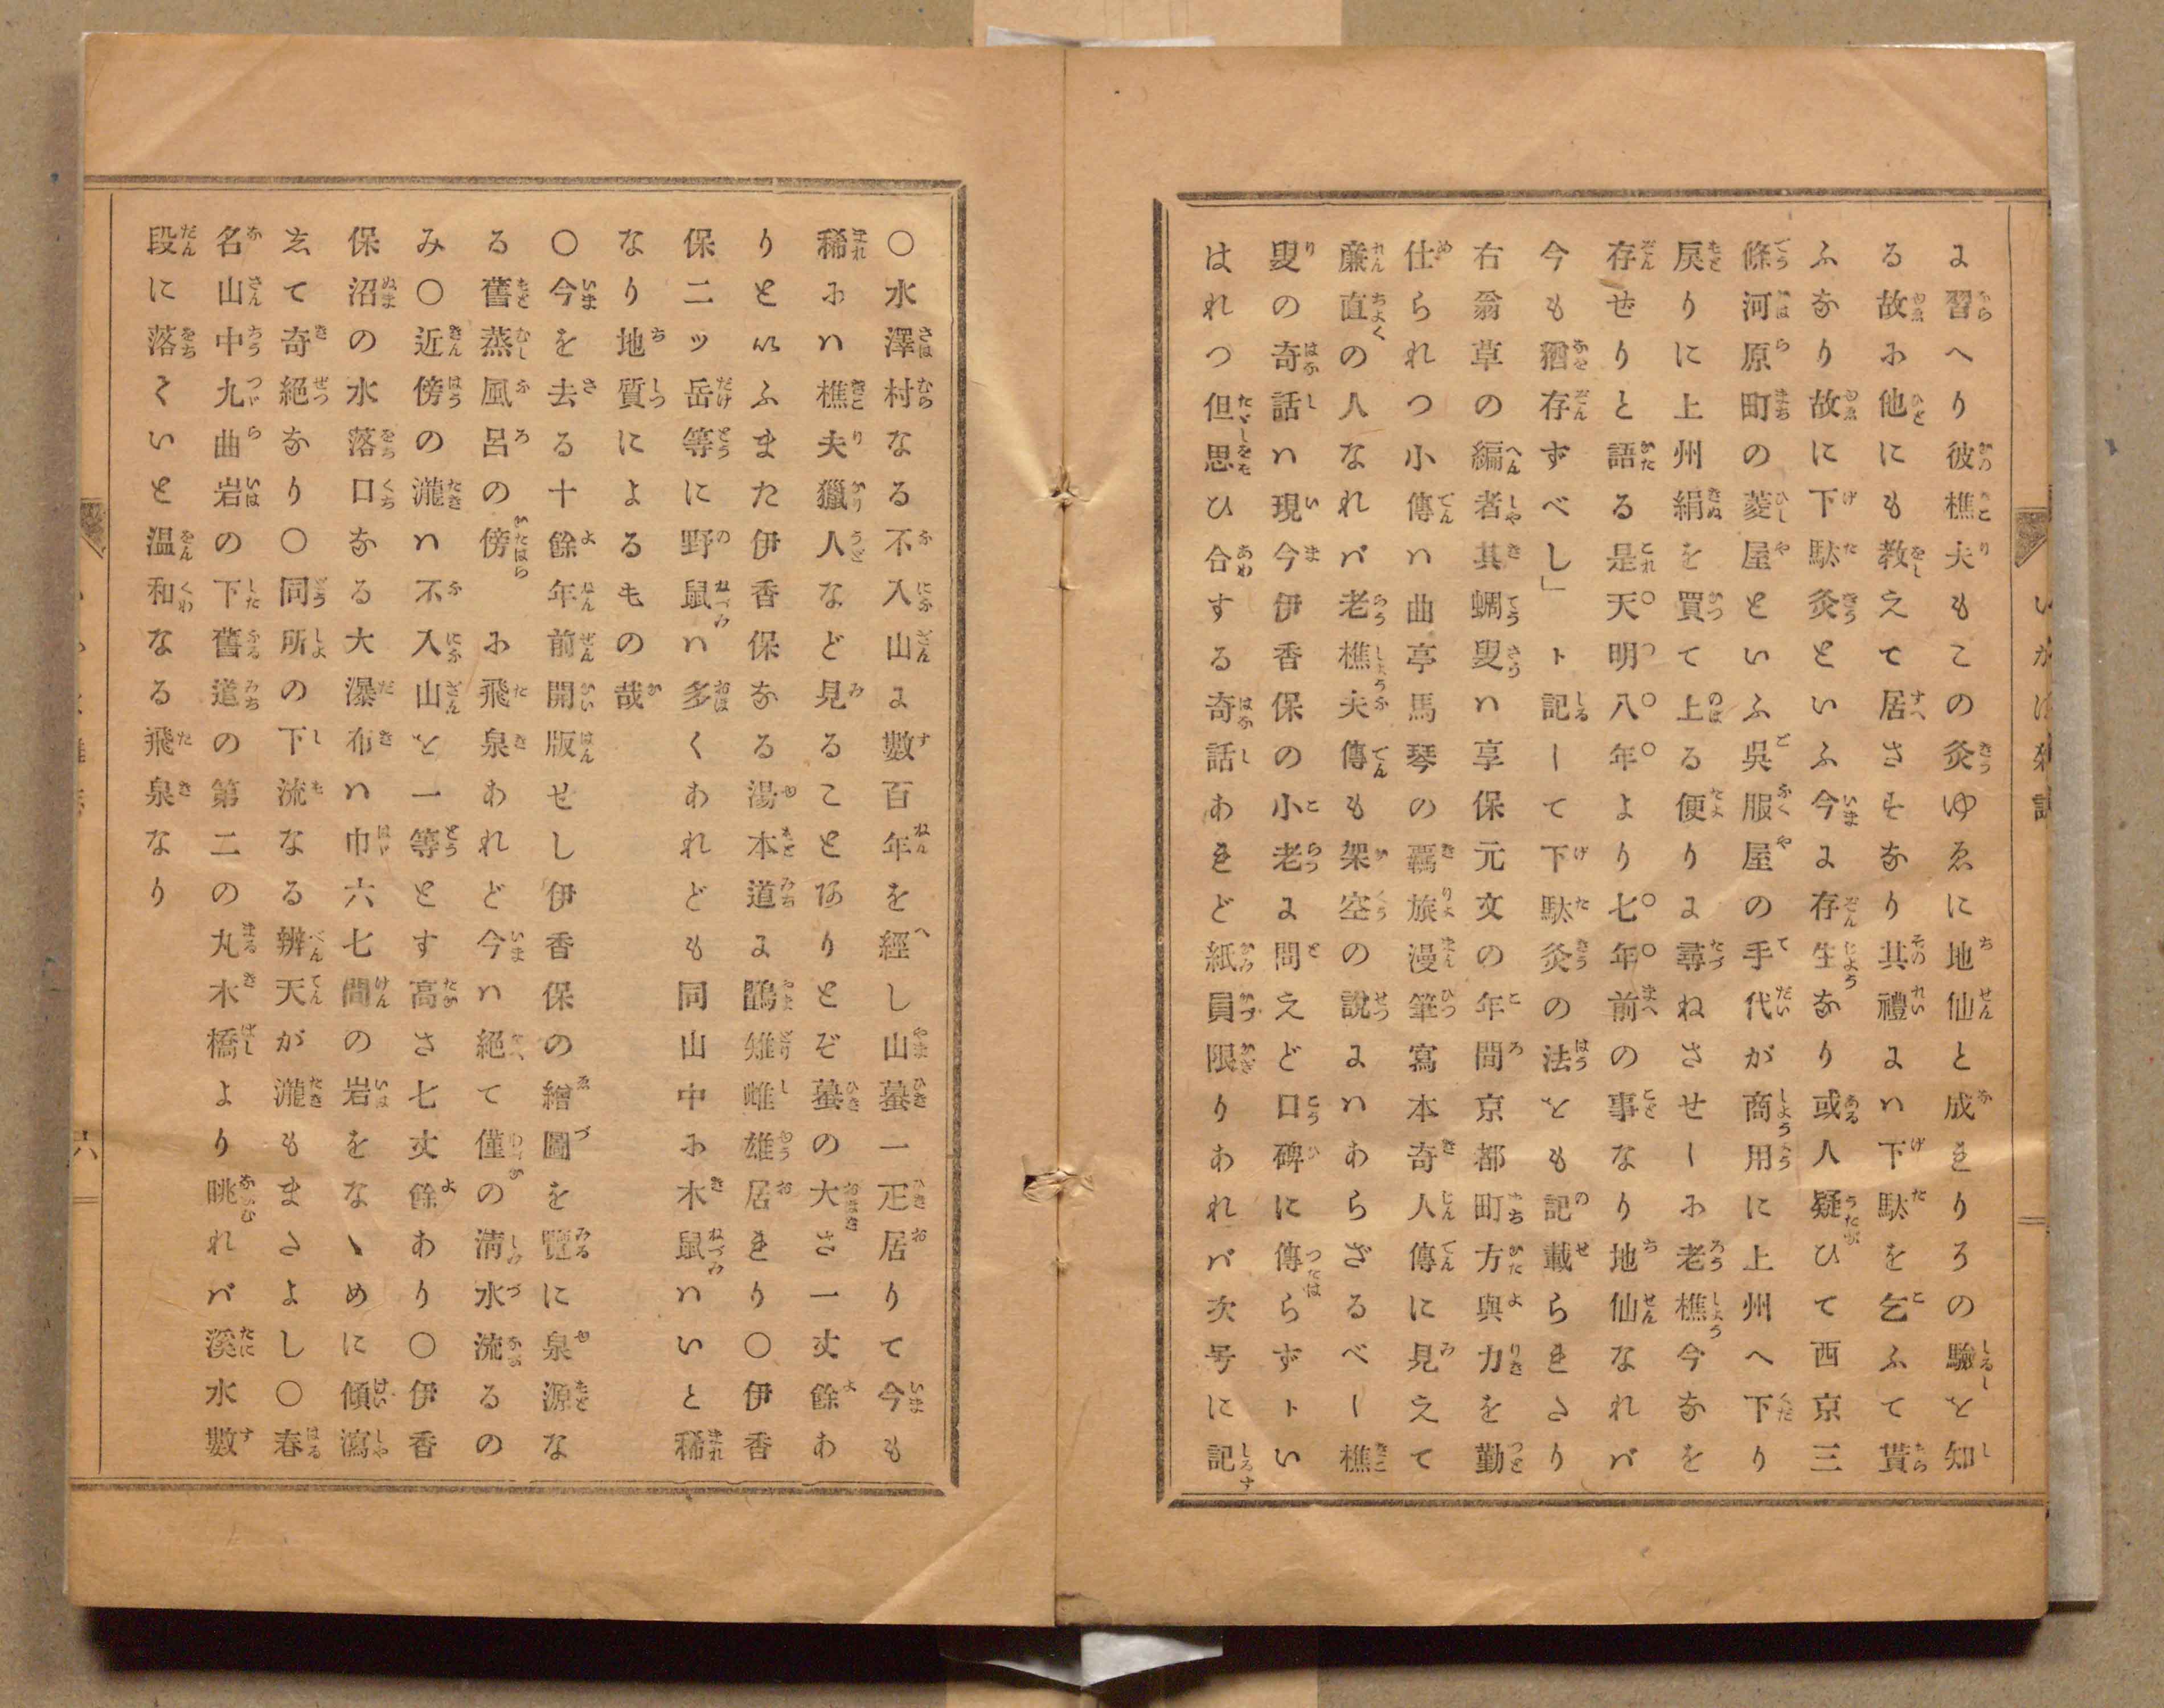 いかほ雜記
よ習へり彼樵夫もこの灸ゆゑに地仙と成ᄅりろの驗と知
る故ふ他にも教えて居さそなり其禮よハ下駄を乞ふて貰
ふなり故に下駄灸といふ今よ存生なり或人疑ひて西京三
條河原町の菱屋といふ吳服屋の手代が商用に上州へ下り
戻りに上州絹を買て上る便りよ尋ねさせしふ老樵今なを
存せりと語る是天明八年より七年前の事なり地仙なれバ
今も猶存ずべし」ト記して下駄灸の法とも記載らᄅさり
右翁草の編者其蜩叟ハ享保元文の年間京都町方與力を勤
仕られつ小傳ハ曲亭馬琴の羇旅漫筆寫本奇人傳に見えて
廉直の人なれバ老樵夫傳も架空の說よハあらざるべし樵
叟の奇話ハ現今伊香保の小老よ問えど口碑に傳らずトい
はれつ但思ひ合する奇話あᄅど紙員限りあれバ次号に記
〇水澤村なる不入山よ數百年を經し山蟇一疋居りて今も
稀ふハ樵夫獵人など見ることありとぞ蟇の大さ一丈餘あ
りといふまた伊香保なる湯本道よ鸓雉雌雄居ᄅり〇伊香
保二ッ岳等に野鼠ハ多くあれども同山中ふ木鼠ハいと稀
なり地質によるもの哉
〇今を去る十餘年前開版せし伊香保の繪圖を覽に泉源な
る舊蒸風呂の傍ふ飛泉あれど今ハ絕て僅の淸水流るの
み〇近傍の瀧ハ不入山と一等とす高さ七丈餘あり〇伊香
保沼の水落口なる大瀑布ハ巾六七間の岩をなゝめに傾瀉
ゑて奇絕なり〇同所の下流なる辨天が瀧もまさよし〇春
名山中九曲岩の下舊道の第二の丸木橋より眺れバ溪水數
段に落くいと温和なる飛泉なり
六